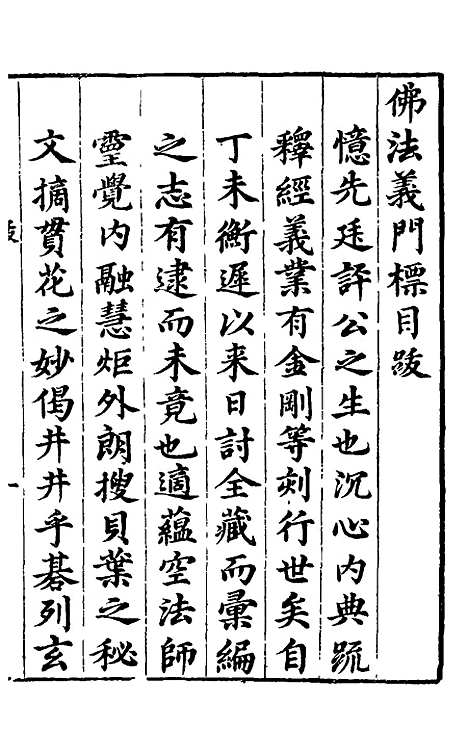 佛法義門標目跋
憶先廷評公之生也沉心內典䟽
釋經義業有金剛等刻行世矣自
丁未衡遲以来日討全藏而彙編
之志有逮而未竟也適蘊空法師
靈覺內融慧炬外朗搜貝葉之秘
文摘貫花之妙偈井井乎碁列玄